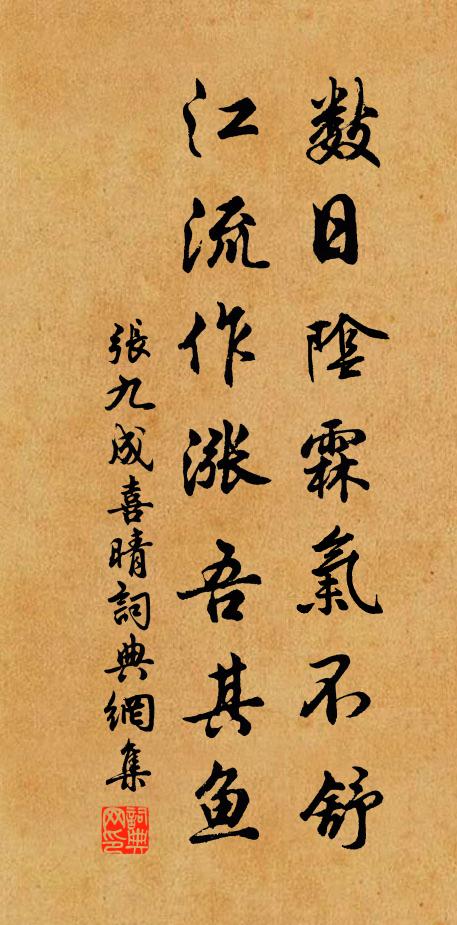 數日陰霖氣不舒
江流作漲吾其鱼
張九成喜晴詞典網集
詞典网印